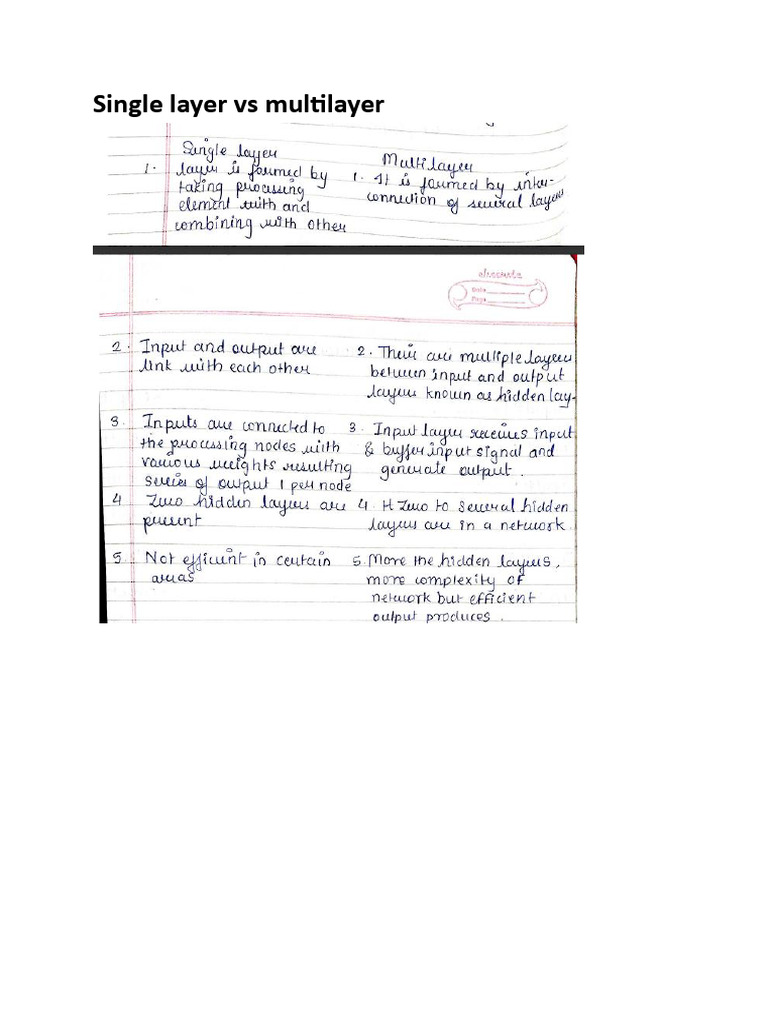 Single layer vs multilayer
Single layer
Multilayer
1. layer is formed by
taking processing
element with and
combining with other
1. It is formed by inter-
connection of several layers
Date
Page
2. Input and output are
link with each other
2. There are multiple layers
between input and output
layers known as hidden lay-
3. Inputs are connected to
the processing nodes with
various weights resulting
series of output 1 per node
3. Input layer receives input
& buffer input signal and
generate output.
4 Zero hidden layers are
present
4. Zero to several hidden
layers are in a network.
5. Not efficient in certain
areas
5. More the hidden layers,
more complexity of
network but efficient
output produces.